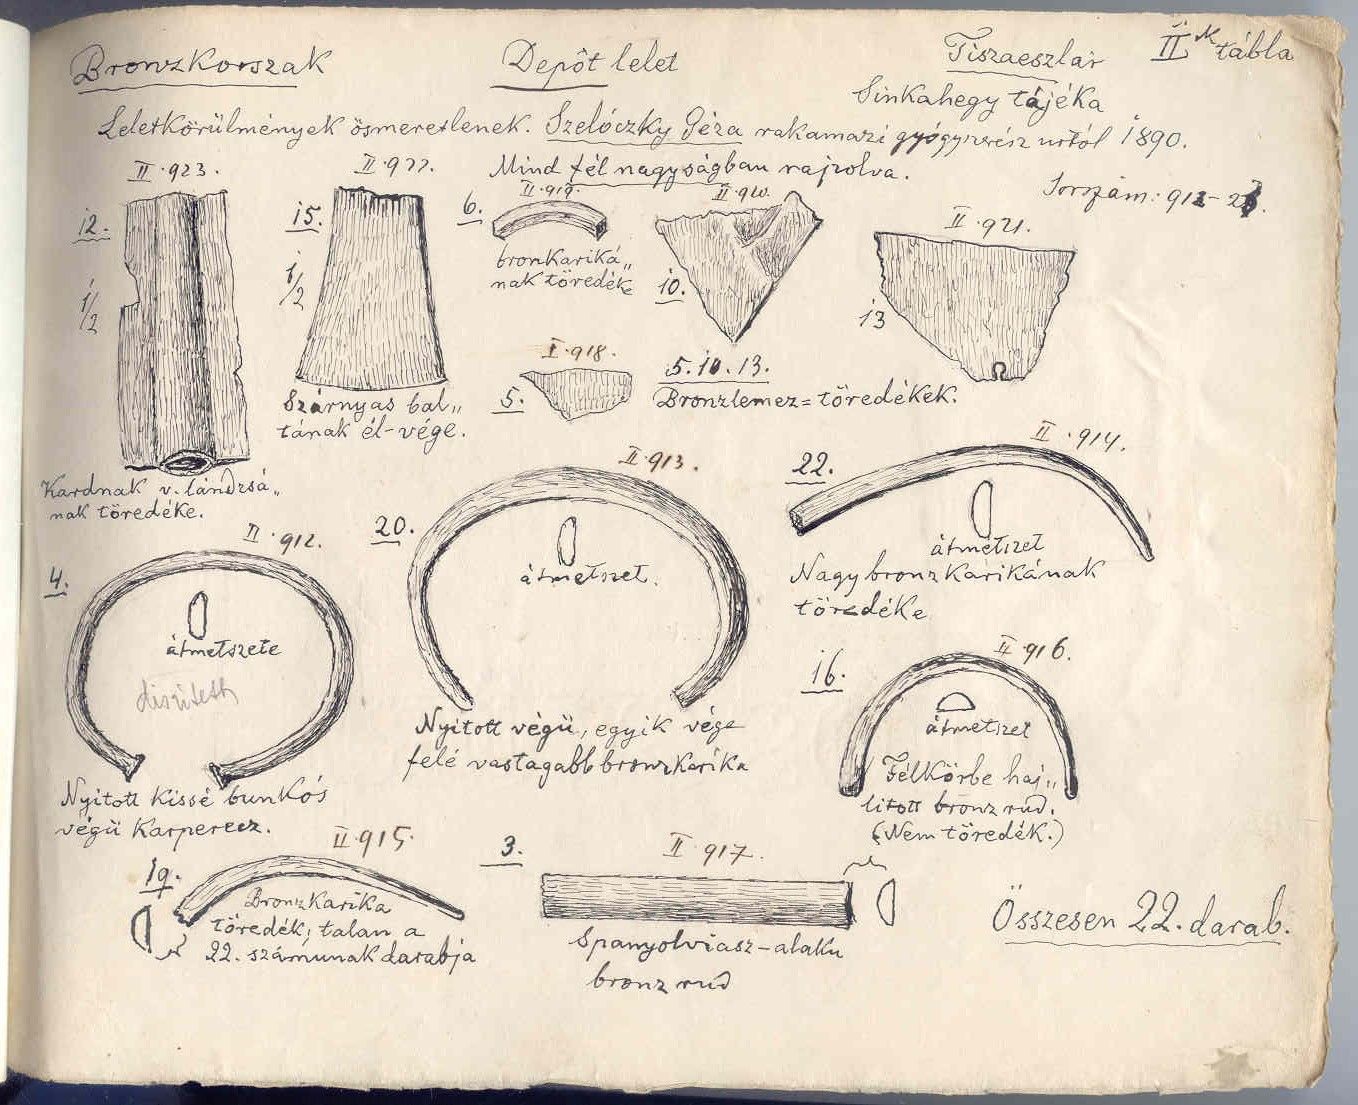 Bronzkorszak
Depôt lelet
Tiszaeszlár
II.ik tábla
Sinkahegy tájéka
Leletkörülmények ösmeretlenek. Szelóczky Géza rakamazi gyógyszerész urtól 1890.
Mind fél nagyságban rajzolva.
Sorszám: 912-23.
II.923.
12.
1/2
Kardnak v. lándzsá„
nak töredéke.
II.922.
15.
1/2
Szárnyas bal„
tának él-vége.
6.
II.919.
bronzkariká„
nak töredéke
II.920.
10.
II.921.
13
I.918.
5.
5. 10. 13.
Bronzlemez=töredékek.
II.912.
4.
átmetszete
diszitett
Nyitott kissé bunkós
végü karperecz.
II.913.
20.
átmetszet.
Nyitott végü, egyik vége
felé vastagabb bronzkarika
II.914.
22.
átmetszet
Nagy bronzkarikának
töredéke
II.916.
16.
átmetszet
Félkörbe haj„
litott bronz rúd.
(Nem töredék.)
II.915.
19.
Bronzkarika
töredék; talan a
22. számunak darabja
3.
II.917.
Spanyolviasz-alaku
bronz rud
Összesen 22. darab.